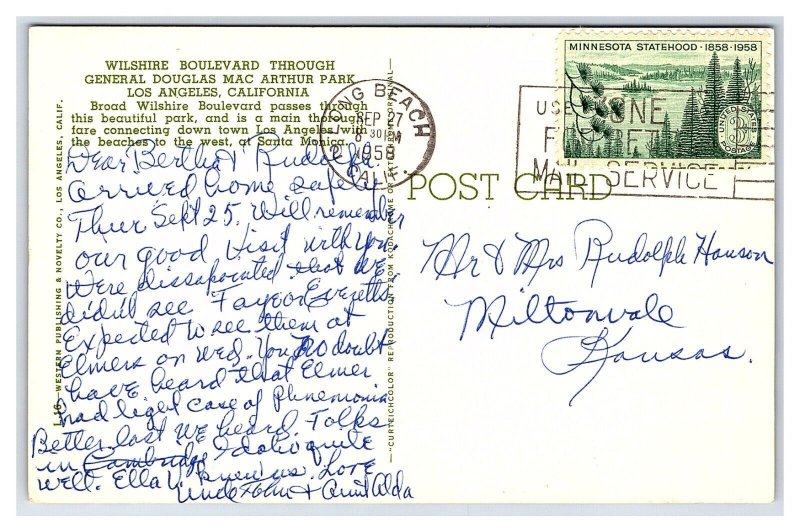 WILSHIRE BOULEVARD THROUGH
GENERAL DOUGLAS MAC ARTHUR PARK
LOS ANGELES, CALIFORNIA
Broad Wilshire Boulevard passes through
this beautiful park, and is a main thorough-
fare connecting down town Los Angeles with
the beaches to the west, at Santa Monica.
Dear Bertha & Rudolph
arrived home safely
Thur Sept 25. Will remember
our good visit with you.
Were dissapointed that we
didn't see Faye or Everett
Expected to see them at
Elmers on Wed. You no doubt
have heard that Elmer
had light case of Phnemonia
Better last we heard. Folks
in Cambridge Idaho quite
well. Ella V. knew us. Love
Uncle John & Aunt Alda
L.16—WESTERN PUBLISHING & NOVELTY CO., LOS ANGELES, CALIF.
"CURTEICHCOLOR" REPRODUCTION FROM KODACHROME OR EKTACHROME ORIGINAL
LONG BEACH
SEP 27
6 30 PM
1958
CALIF.
MINNESOTA STATEHOOD · 1858-1958
UNITED STATES
POSTAGE
3¢
USE ZONE
FOR BETTER
MAIL SERVICE
POST CARD
Mr & Mrs Rudolph Hanson
Miltonvale
Kansas.